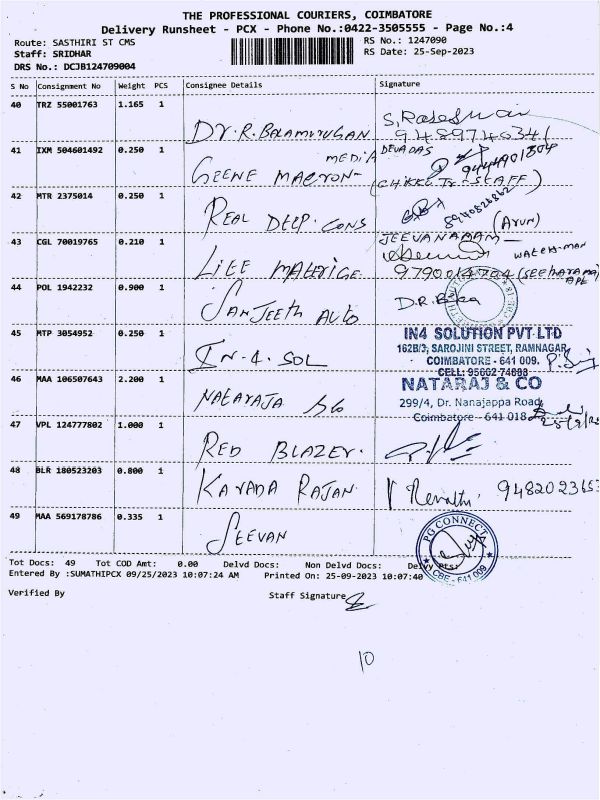 THE PROFESSIONAL COURIERS, COIMBATORE
Delivery Runsheet - PCX - Phone No.:0422-3505555 - Page No.:4
Route: SASTHIRI ST CMS
RS No.: 1247090
Staff: SRIDHAR
RS Date: 25-Sep-2023
DRS No.: DCJB124709004
S No Consignment No Weight PCS Consignee Details Signature
40 TRZ 55001763 1.165 1
DR.R.BALAMURUGAN
41 IXM 504601492 0.250 1
MEDIA DEVADAS
STAFF)
42 MTR 2375014 0.250 1
REAL DEEP. CONS
(Arun)
43 CGL 70019765 0.210 1
JEEVANANAM
WATCH-MAN
LIFE
44 POL 1942232 0.900 1
SANJEETH AUTO
45 MTP 3054952 0.250 1
IN-4.SOL
IN4 SOLUTION PVT LTD
162B/3, SAROJINI STREET, RAMNAGAR,
COIMBATORE - 641 009.
CELL: 95662 74888
46 MAA 106507643 2.200 1
NATARAJA &Co
NATARAJ & CO
299/4, Dr. Nanajappa Road,
Coimbatore - 641 018
47 VPL 124777802 1.000 1
RED BLAZER.
48 BLR 180523203 0.800 1
KANADA RAJAN
Revathi.
49 MAA 569178786 0.335 1
JEEVAN
PG CONNECT
CBE - 641 009
Tot Docs: 49 Tot COD Amt: 0.00 Delvd Docs: Non Delvd Docs: Delvy Pts:
Entered By :SUMATHIPCX 09/25/2023 10:07:24 AM Printed On: 25-09-2023 10:07:40
Verified By Staff Signature
10